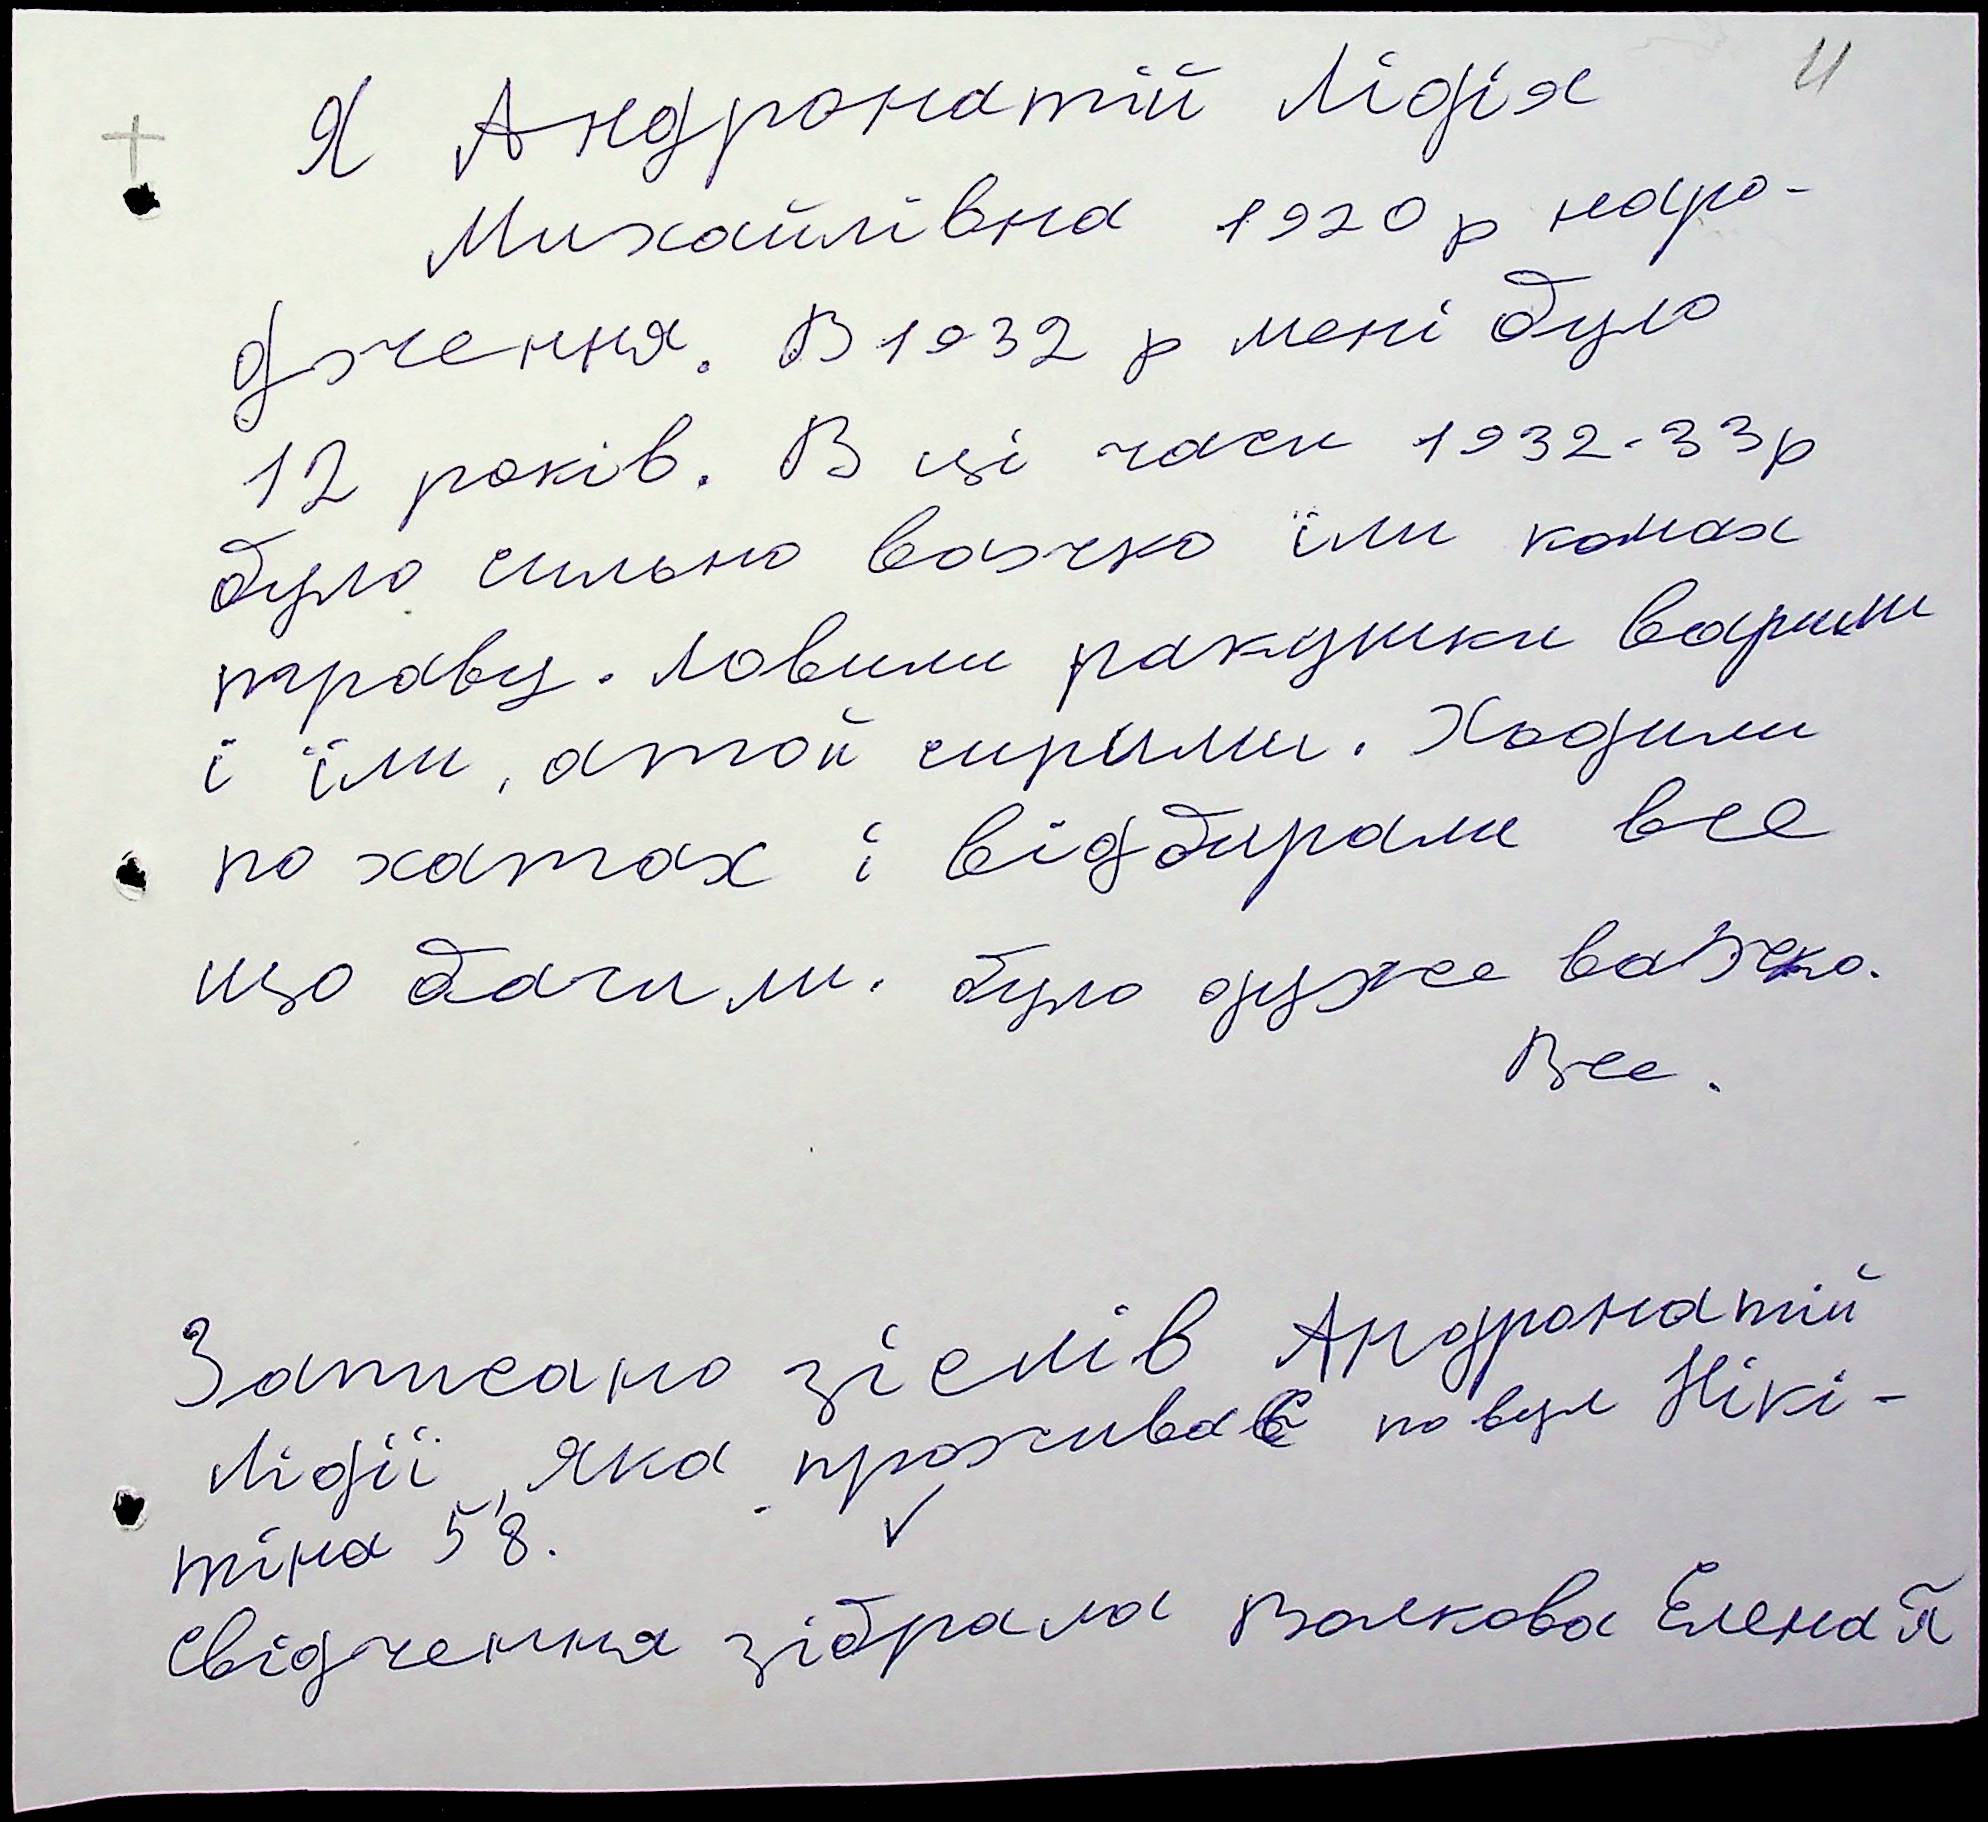 11
Я Андронатій Лідія
Михайлівна 1920 р наро-
дження. В 1932 р мені було
12 років. В ці часи 1932-33р
було сильно важко їли комах
траву. ловили ракушки варили
і їли, атой сирими. Ходили
по хатах і відбирали все
що бачили. було дуже важко.
Все.
Записано зі слів Андронатій
Лідії, яка проживає по вул Нікі-
тіна 58.
Свідчення зібрала Волкова Елена П